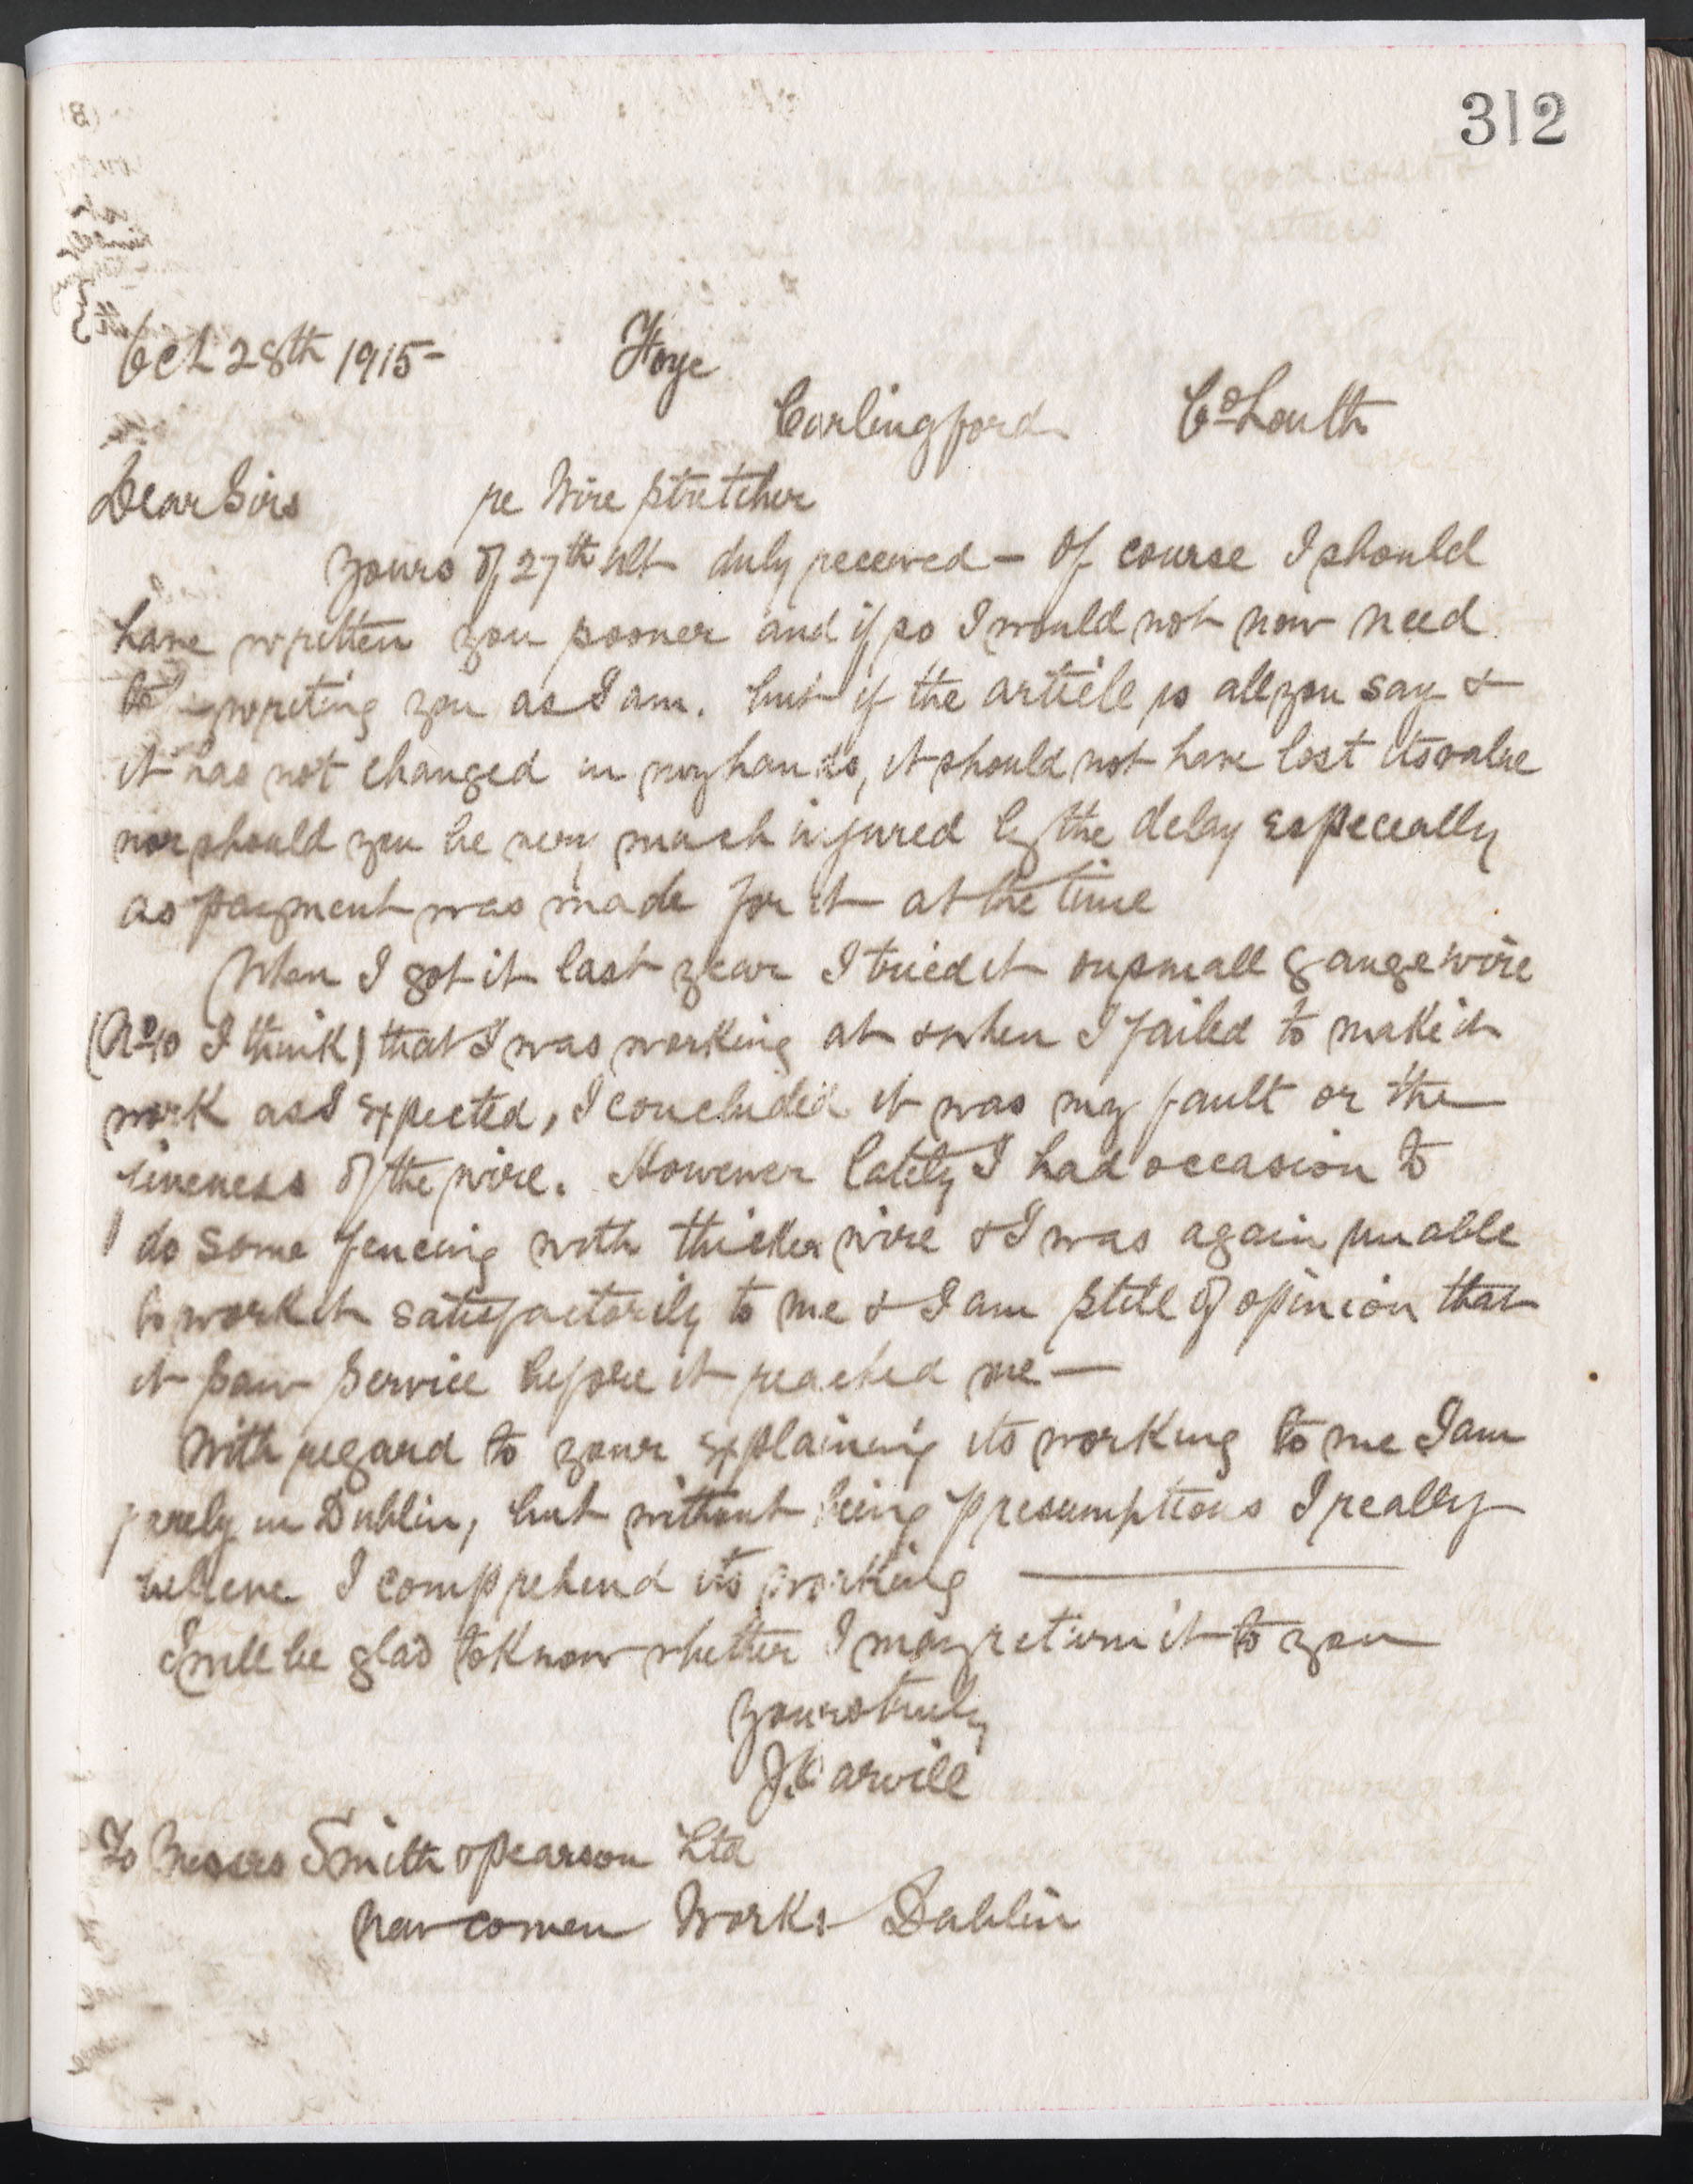 312
Oct 28th 1915- Foye
Carlingford Co Louth
Dear Sirs re Wire Stretcher
Yours of 27th ult duly received - Of course I should
have written you sooner and if so I would not now need
to writing you as I am. but if the article is all you say &
it has not changed in my hands, it should not have lost its value
nor should you be very much injured by the delay especially
as payment was made for it at the time
When I got it last year I tried it on small gauge wire
(No 10 I think) that I was working at & when I failed to make it
work as I expected, I concluded it was my fault or the
fineness of the wire. However lately I had occasion to
do some fencing with thicker wire & I was again unable
to work it satisfactorily to me & I am still of opinion that
it saw service before it reached me -
With regard to your explaining its working to me I am
rarely in Dublin, but without being presumptious I really
believe I comprehend its working
I will be glad to know whether I may return it to you
Yours truly
J. Carvill
To Messrs Smith & Pearson Ltd
Newcomen Works Dublin